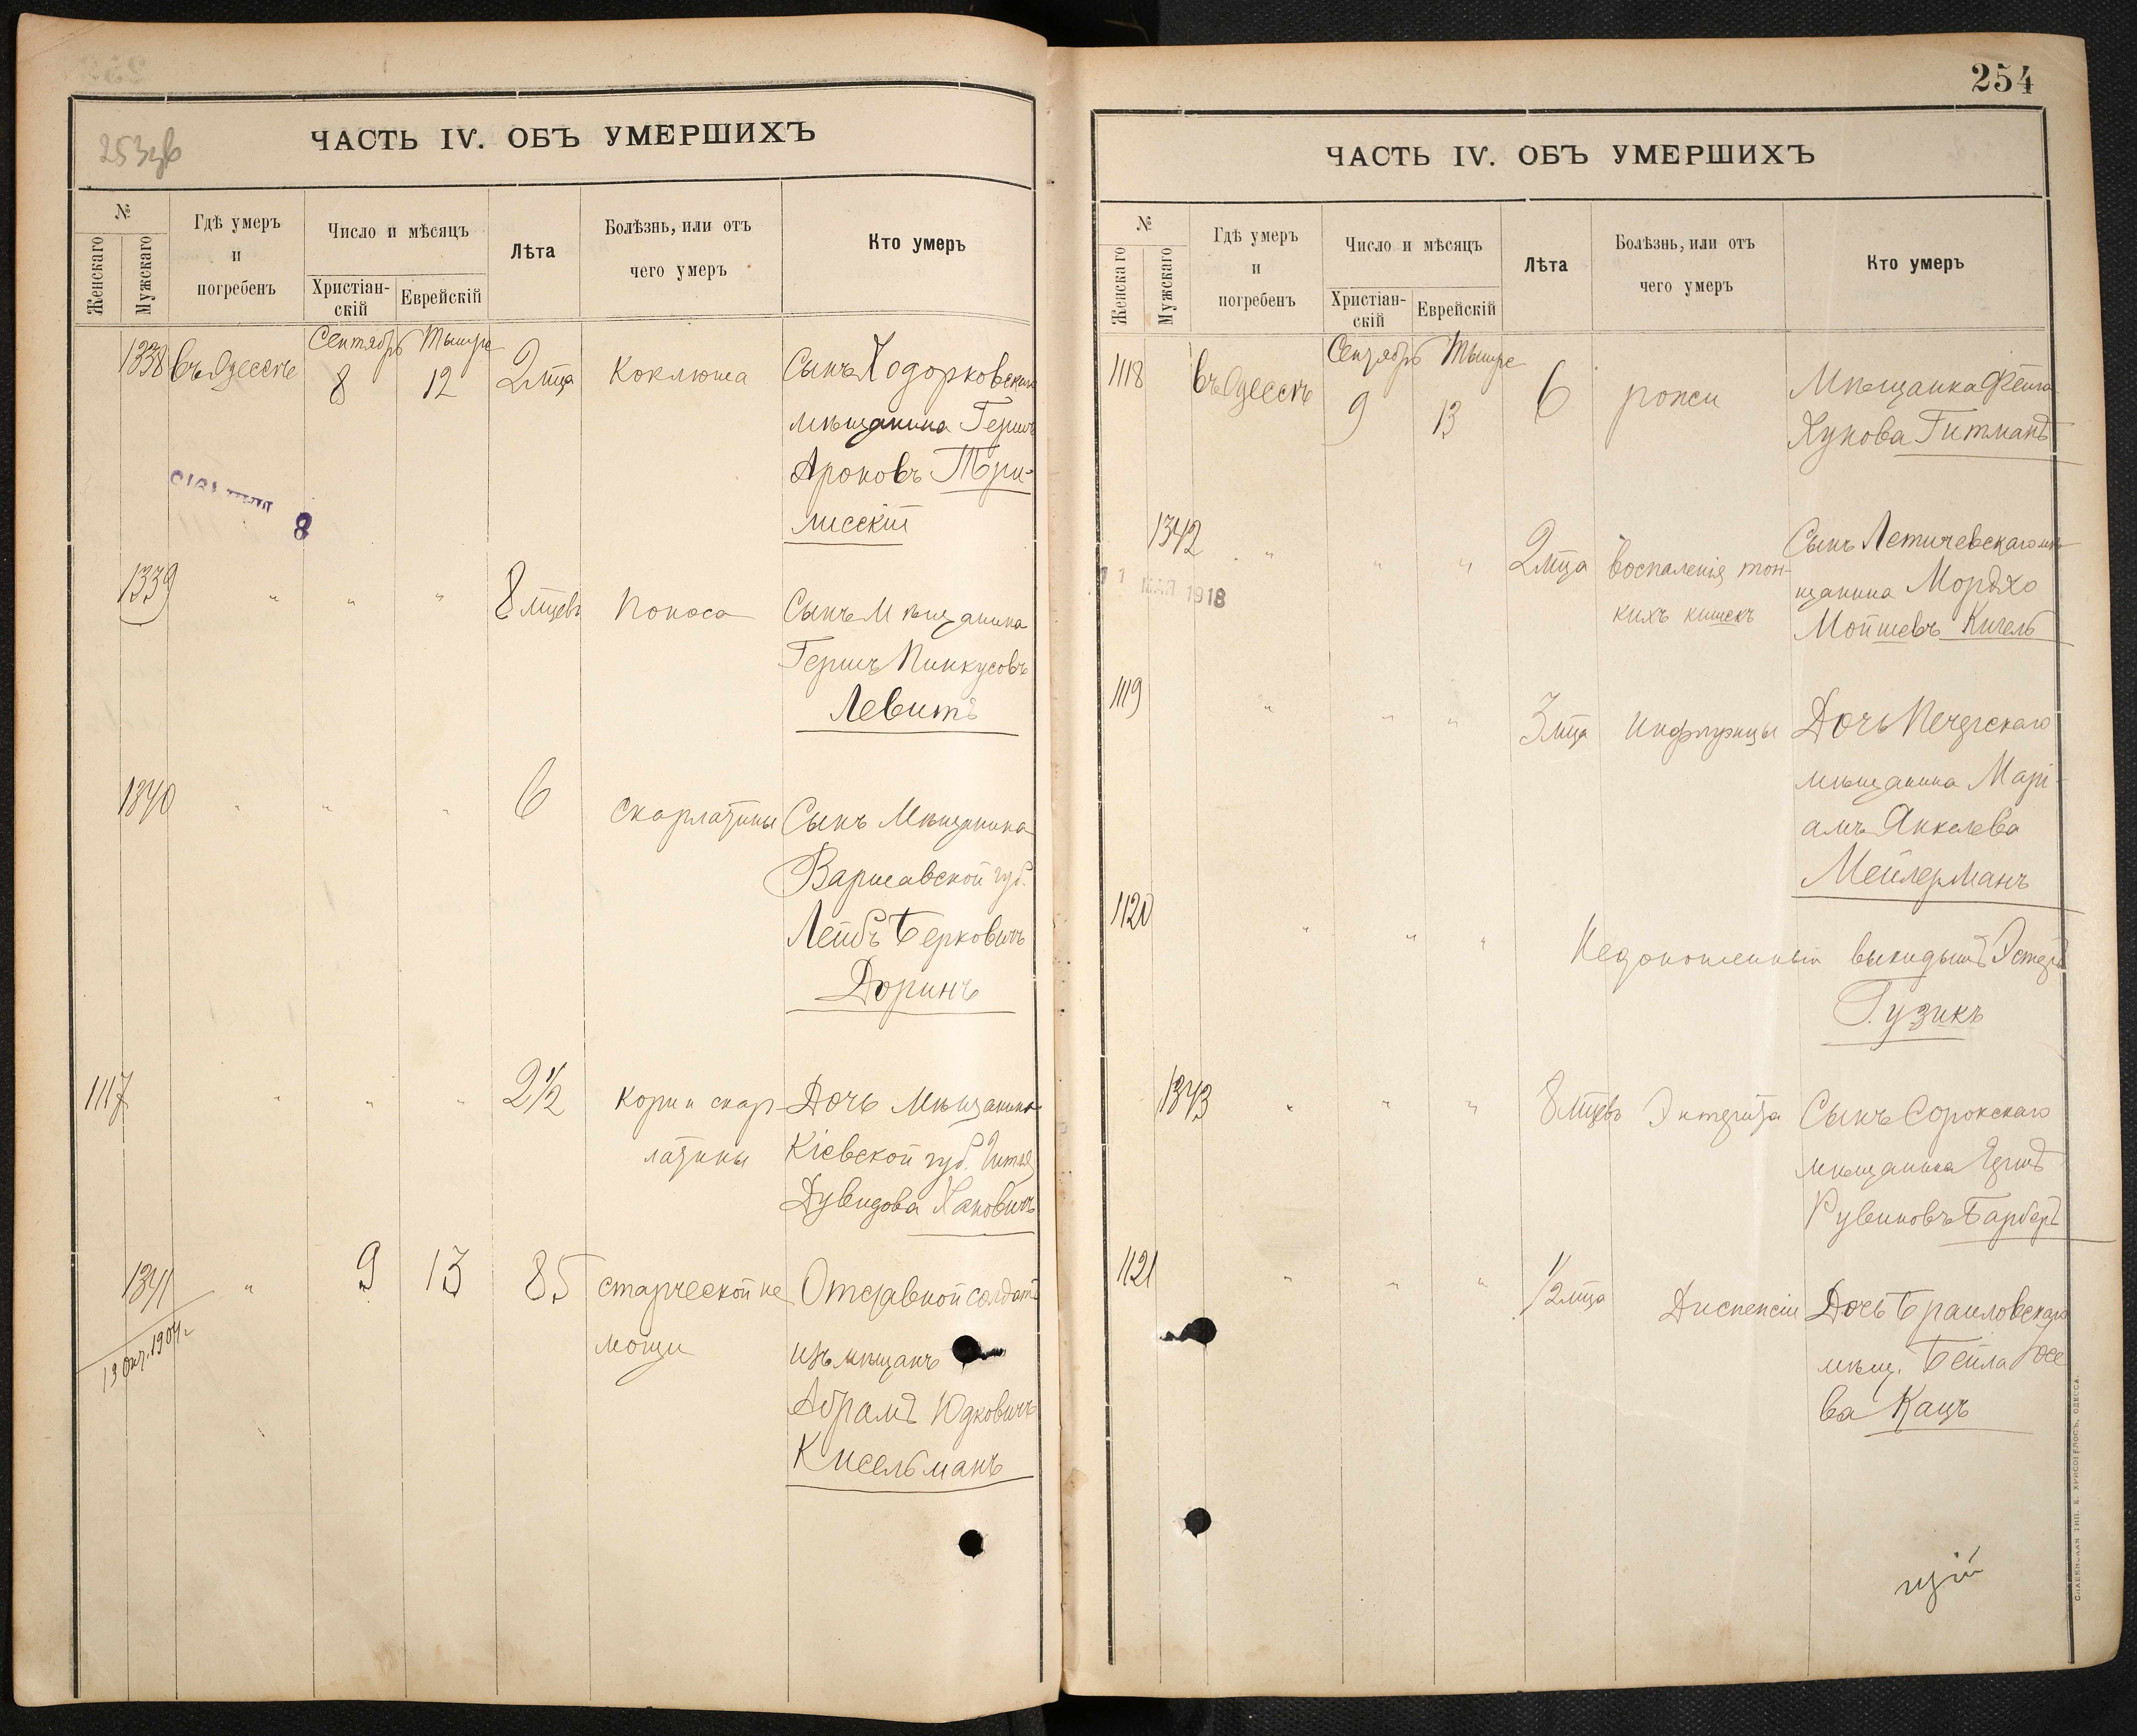 253зв
ЧАСТЬ IV. ОБЪ УМЕРШИХЪ
№
Женскаго
Мужскаго
Гдѣ умеръ
и
погребенъ
Число и мѣсяцъ
Христіан-
скій
Еврейскій
Лѣта
Болѣзнь, или отъ
чего умеръ
Кто умеръ
Сентябрь Тышре
1338 въ Одессѣ 8 12 2 мца Коклюша Сынъ Ходорковскаго
мѣщанина Гершъ
Ароновъ Три-
лисскій
8
1339 " " " 8 мцевъ Поноса Сынъ Мѣщанина
Гершъ Пинкусовъ
Левитъ
1340 " " " 6 скарлатины Сынъ Мѣщанина
Варшавской губ.
Лейбъ Берковичъ
Доринъ
1117 " " " 2 1/2 Кори и скар- Дочь Мѣщанина
латины Кіевской губ.
Дувидова Хановичъ
1341 " 9 13 85 старческой не Отставной солдатъ
мощи изъ мѣщанъ
Абрамъ Юдковичъ
Кисельманъ
19 окт. 1904 г.
254
ЧАСТЬ IV. ОБЪ УМЕРШИХЪ
№
Женскаго
Мужскаго
Гдѣ умеръ
и
погребенъ
Число и мѣсяцъ
Христіан-
скій
Еврейскій
Лѣта
Болѣзнь, или отъ
чего умеръ
Кто умеръ
Сентябрь Тышре
1118 въ Одессѣ 9 13 6 рожи Мѣщанка Фейга
Хунова Гитманъ
1342 " " " 2 мца воспаленія тон- Сынъ Летичевскаго мѣ-
кихъ кишекъ щанина Мордхо
Мойшевъ Кигель
11 МАЯ 1918
1119 " " " 3 мца Инфлуэнцы Дочь
мѣщанина Марі-
амъ Янкелева
Мейлерманъ
1120 " " " Недоношенный выкидышъ Эстеръ
Гузикъ
1343 " " " 8 мцевъ Энтерита Сынъ Сорокскаго
мѣщанина Гершъ
Рувиновъ Барберъ
1121 " " " 1/2 мца Диспепсіи Дочь Браиловскаго
мѣщ. Бейла Іосе
ва Кацъ
СЛАВЯНСКАЯ ТИП. Е. ХРИСОГЕЛОСЪ, ОДЕССА.